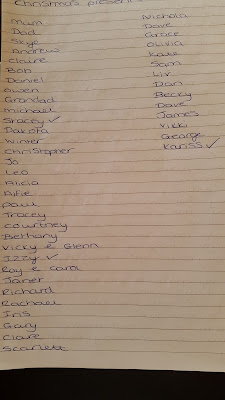 Christmas present
Mum
Dad
Skye
Andrew
Claire
Bob
Daniel
Owen
Grandad
Michael
Stacey ✓
Dakota
Winter
Christopher
Jo
Leo
Alicia
Alfie
Paul
Tracey
Courtney
Bethany
Vicky & Glenn
Izzy ✓
Roy & Carol
Janet
Richard
Rachael
Iris
Gary
Claire
Scarlett
Nichola
Dave
Grace
Olivia
Kate
Sam
Liv
Dan
Becky
Dave
James
Vikki
George
✓